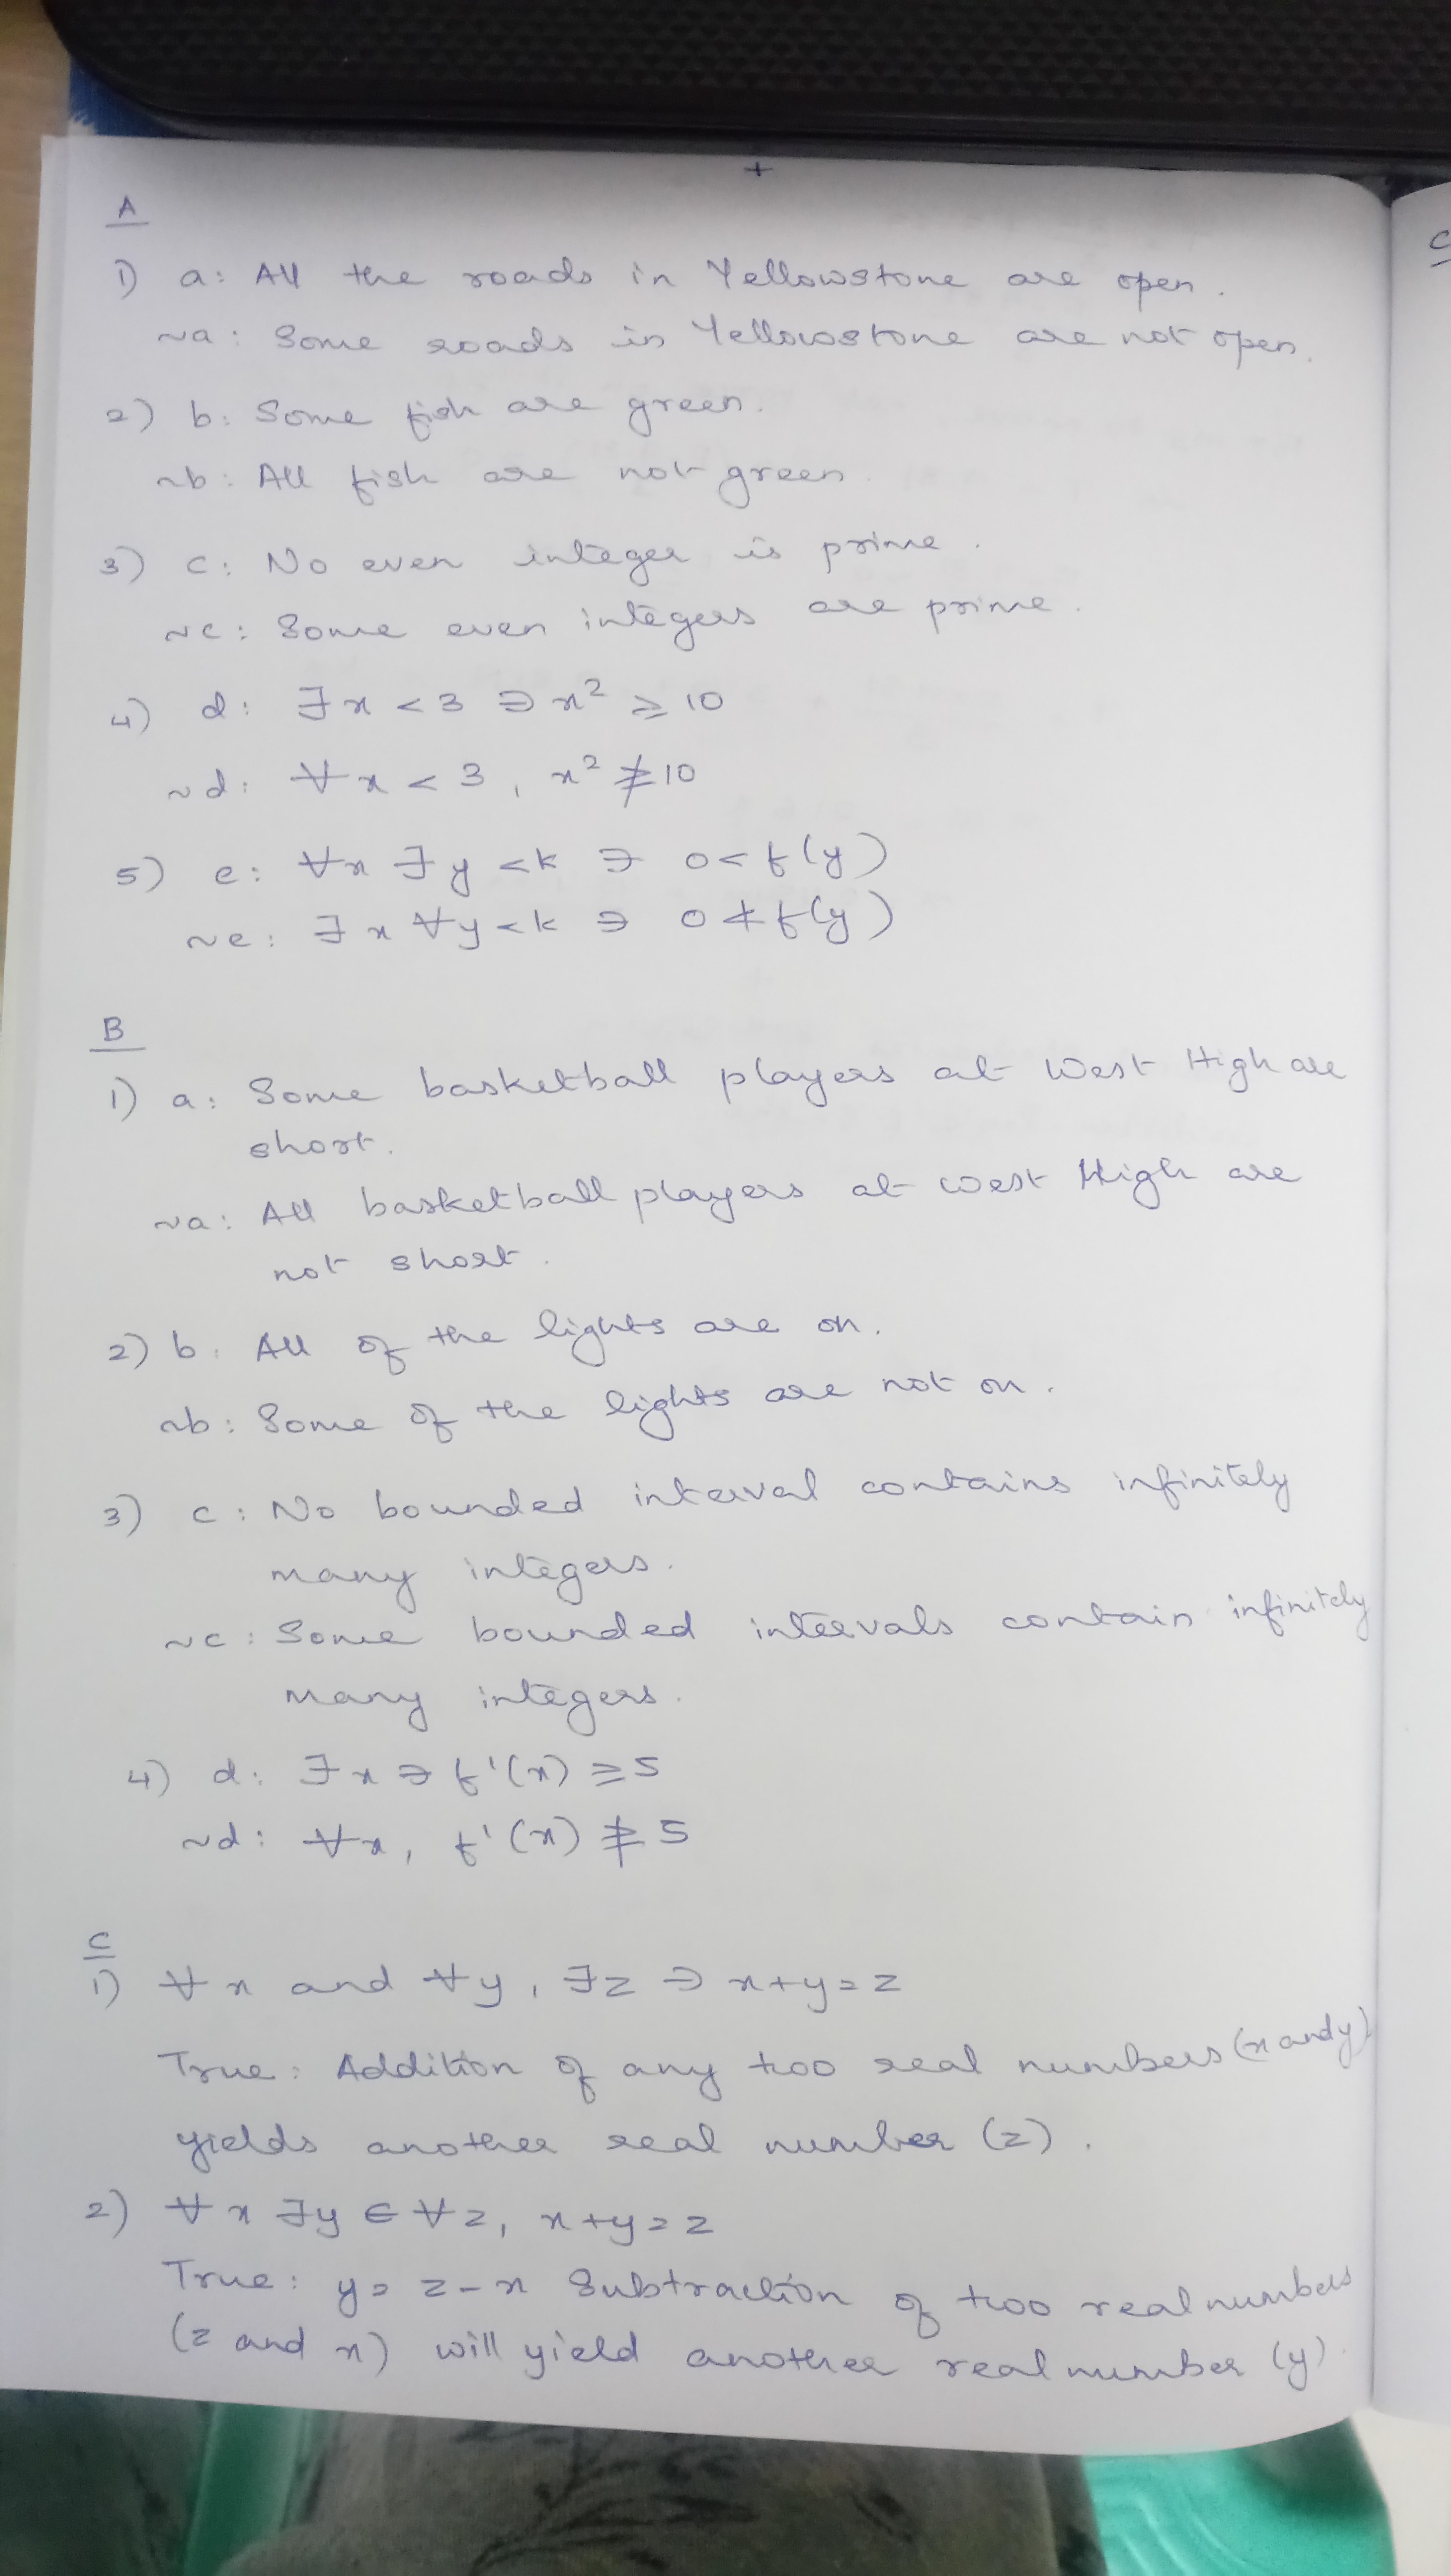 A
1) a: All the roads in Yellowstone are open.
~a: Some roads in Yellowstone are not open.
2) b: Some fish are green.
~b: All fish are not green.
3) c: No even integer is prime.
~c: Some even integers are prime.
4) d: ∃x < 3 ∋ x² ≥ 10
~d: ∀x < 3, x² ≱ 10
5) e: ∀x ∃y < k ∋ 0 < f(y)
~e: ∃x ∀y < k ∋ 0 ≮ f(y)
B
1) a: Some basketball players at West High are
short.
~a: All basketball players at West High are
not short.
2) b: All of the lights are on.
~b: Some of the lights are not on.
3) c: No bounded interval contains infinitely
many integers.
~c: Some bounded intervals contain infinitely
many integers.
4) d: ∃x ∋ f'(x) ≥ 5
~d: ∀x, f'(x) ≱ 5
C
1) ∀x and ∀y, ∃z ∋ x+y=z
True: Addition of any two real numbers (x and y)
yields another real number (z).
2) ∀x ∃y ∈ ∀z, x+y=z
True: y = z-x Subtraction of two real numbers
(z and x) will yield another real number (y).